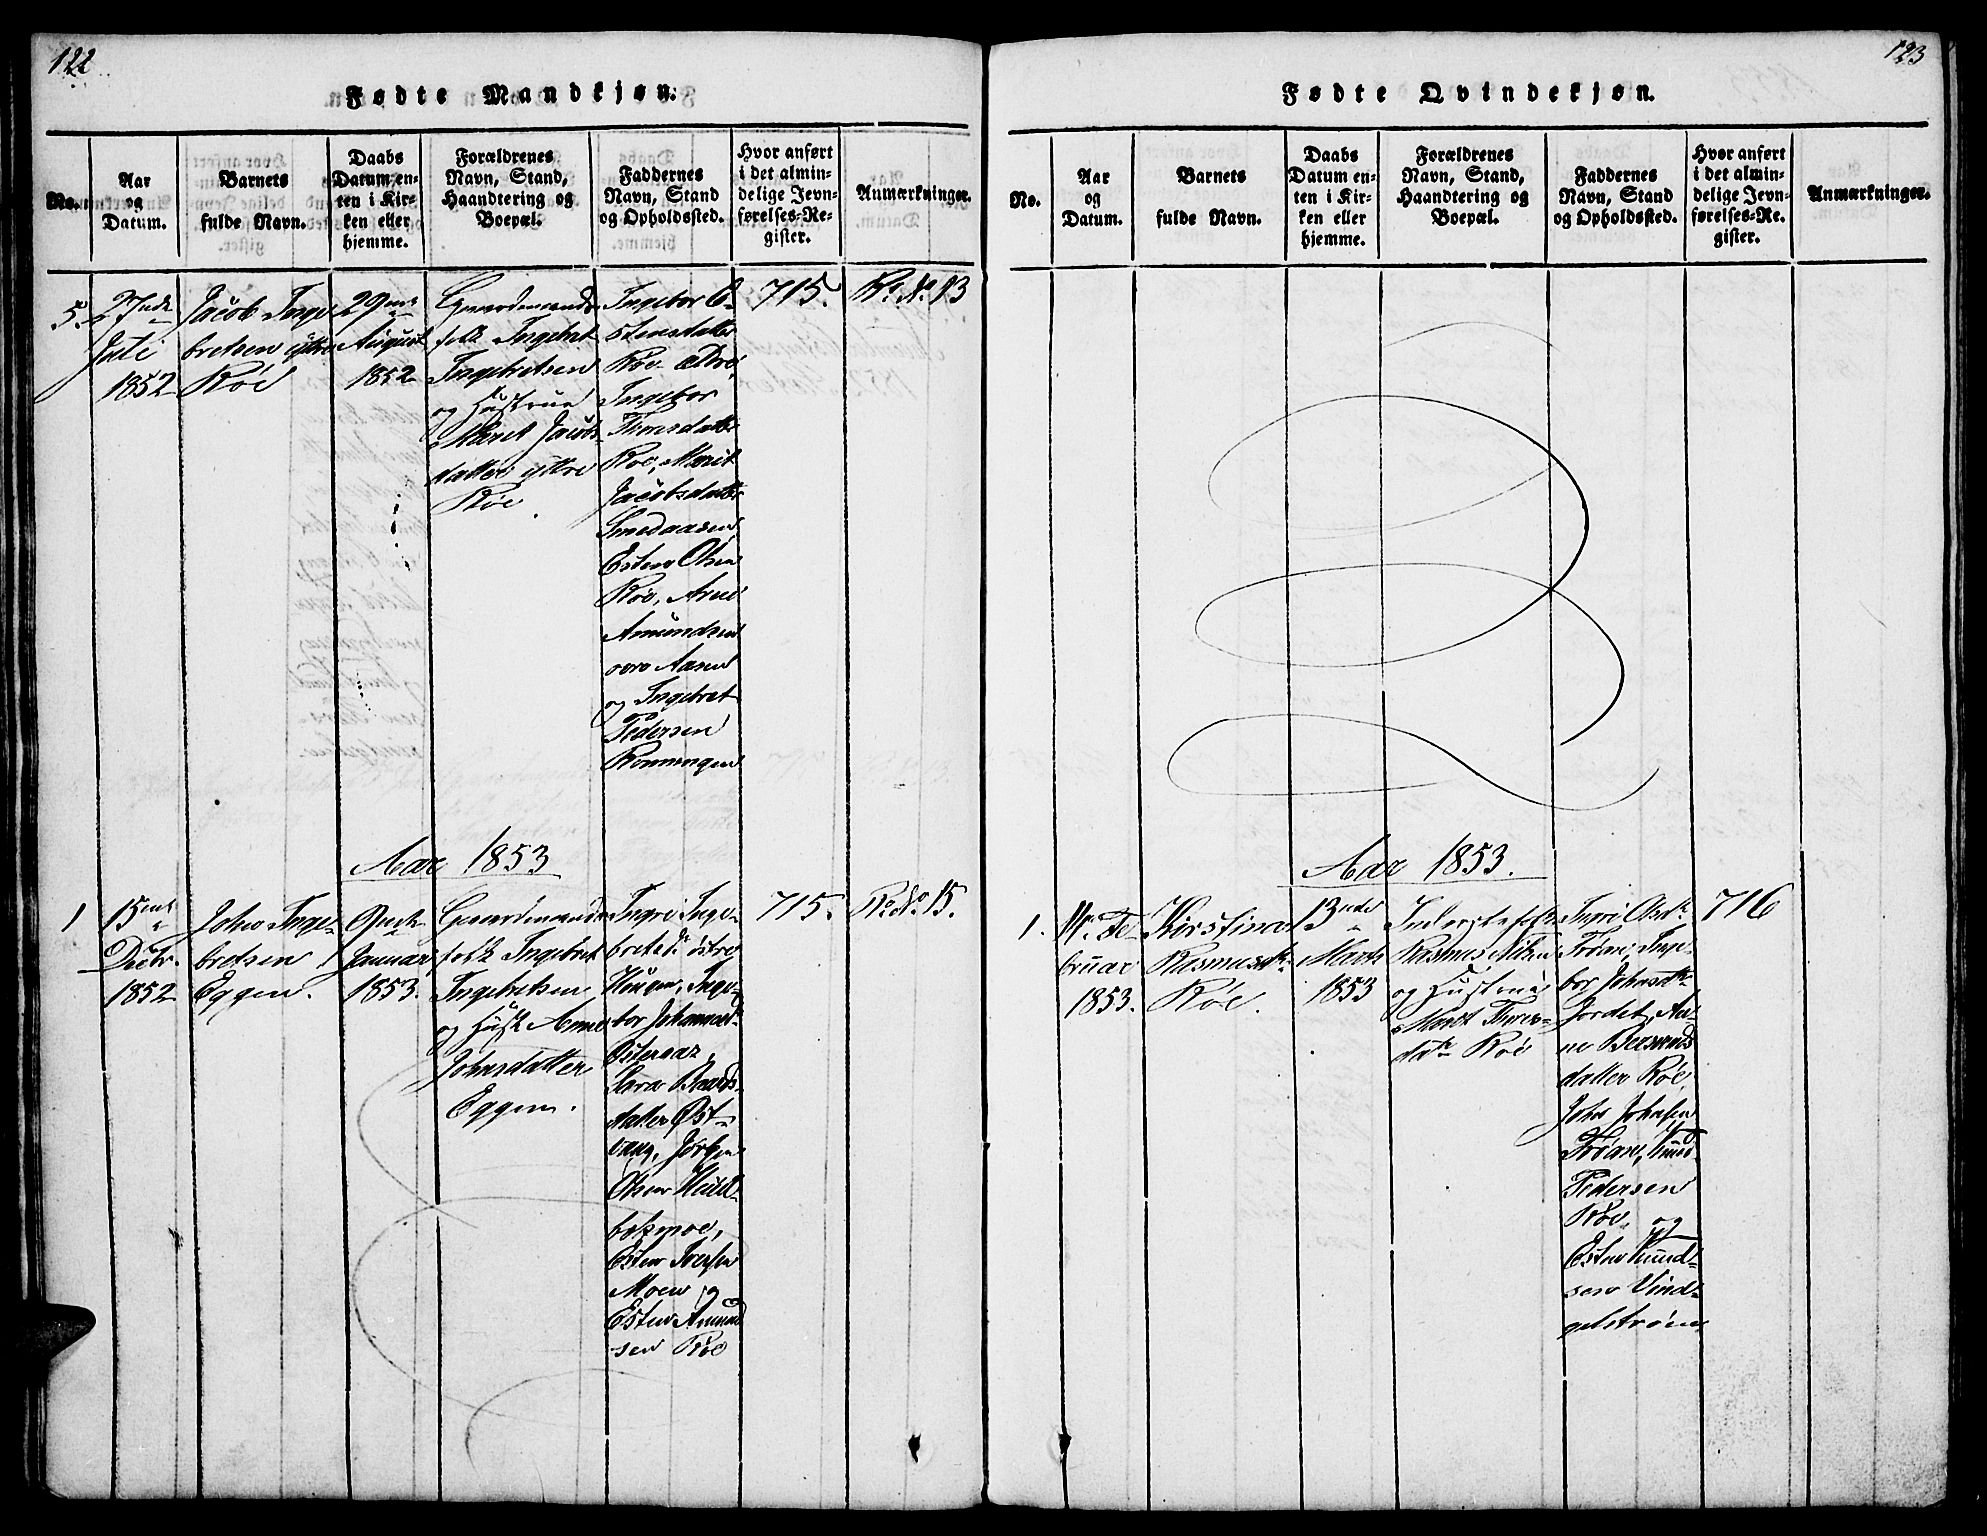 122
Fødte Mandkjøn.
No.
Aar
og
Datum.
Barnets
fulde Navn.
Daabs
Datum en-
ten i Kir-
ken eller
hjemme.
Forældrenes
Navn, Stand,
Haandtering og
Boepæl.
Faddernes
Navn, Stand
og Opholdssted.
Hvor anført
i det almin-
delige Jevn-
førelses-Re-
gister.
Anmærkninger.
5.
27de
Juli
1852
Jacob Inge
bretsen ytre
Røe
29de
August
1852
Gaardmands
folk Ingebret
Ingebretsen
og Hustrue
Maret Jacobs
datter ytre
Røe
Ingebor E-
stensdatter
Røe
Ingebor
Thoresdatter
Røe, Marit
Jacobsdatter
Smedaasen
Esten Olsen
Røe, Arne
Amundsen
øvre Aasen
og Ingebret
Pedersen
Rønningen
715.
No. 13
Aar 1853
1
15de
Decbr.
1852
John Inge-
bretsen
Eggen.
Januar
1853.
Gaardmands
folk Ingebret
Ingebretsen
og Hust. Anne
Johnsdatter
Eggen.
Ingri Inge-
bretsd. østre
Haugen, Inge-
bor Johannesd.
Østeraas
Sara Baards-
datter Øst-
vang, Jørgen
Olsen
Esten Iversen
Moen og
Esten Amund
sen Røe
715.
No. 15.
123
Fødte Qvindekjøn.
No.
Aar
og
Datum.
Barnets
fulde Navn.
Daabs
Datum en-
ten i Kir-
ken eller
hjemme.
Forældrenes
Navn, Stand,
Haandtering og
Boepæl.
Faddernes
Navn, Stand
og Opholdssted.
Hvor anført
i det almin-
delige Jevn-
førelses-Re-
gister.
Anmærkninger.
Aar 1853.
1.
Fe-
bruar
1853.
Kirstina
Rasmusdtr.
Røe.
13de
Marts
1853
Inderstefolk
Rasmus
og Hustrue
Maret Thores-
datr Røe
Ingri Olsdtr
Trøan, Inge-
bor Johnsdtr
Jordet, An
ne
datter Røe,
John Johnsen
Trøan, Knud
Pedersen
Røe, og
Esten Knud-
sen Vind-
gelstrøm
716